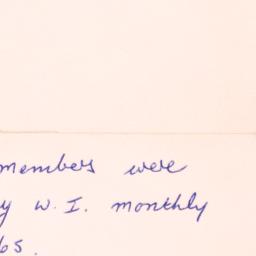 members were
y W. I. monthly
bs.